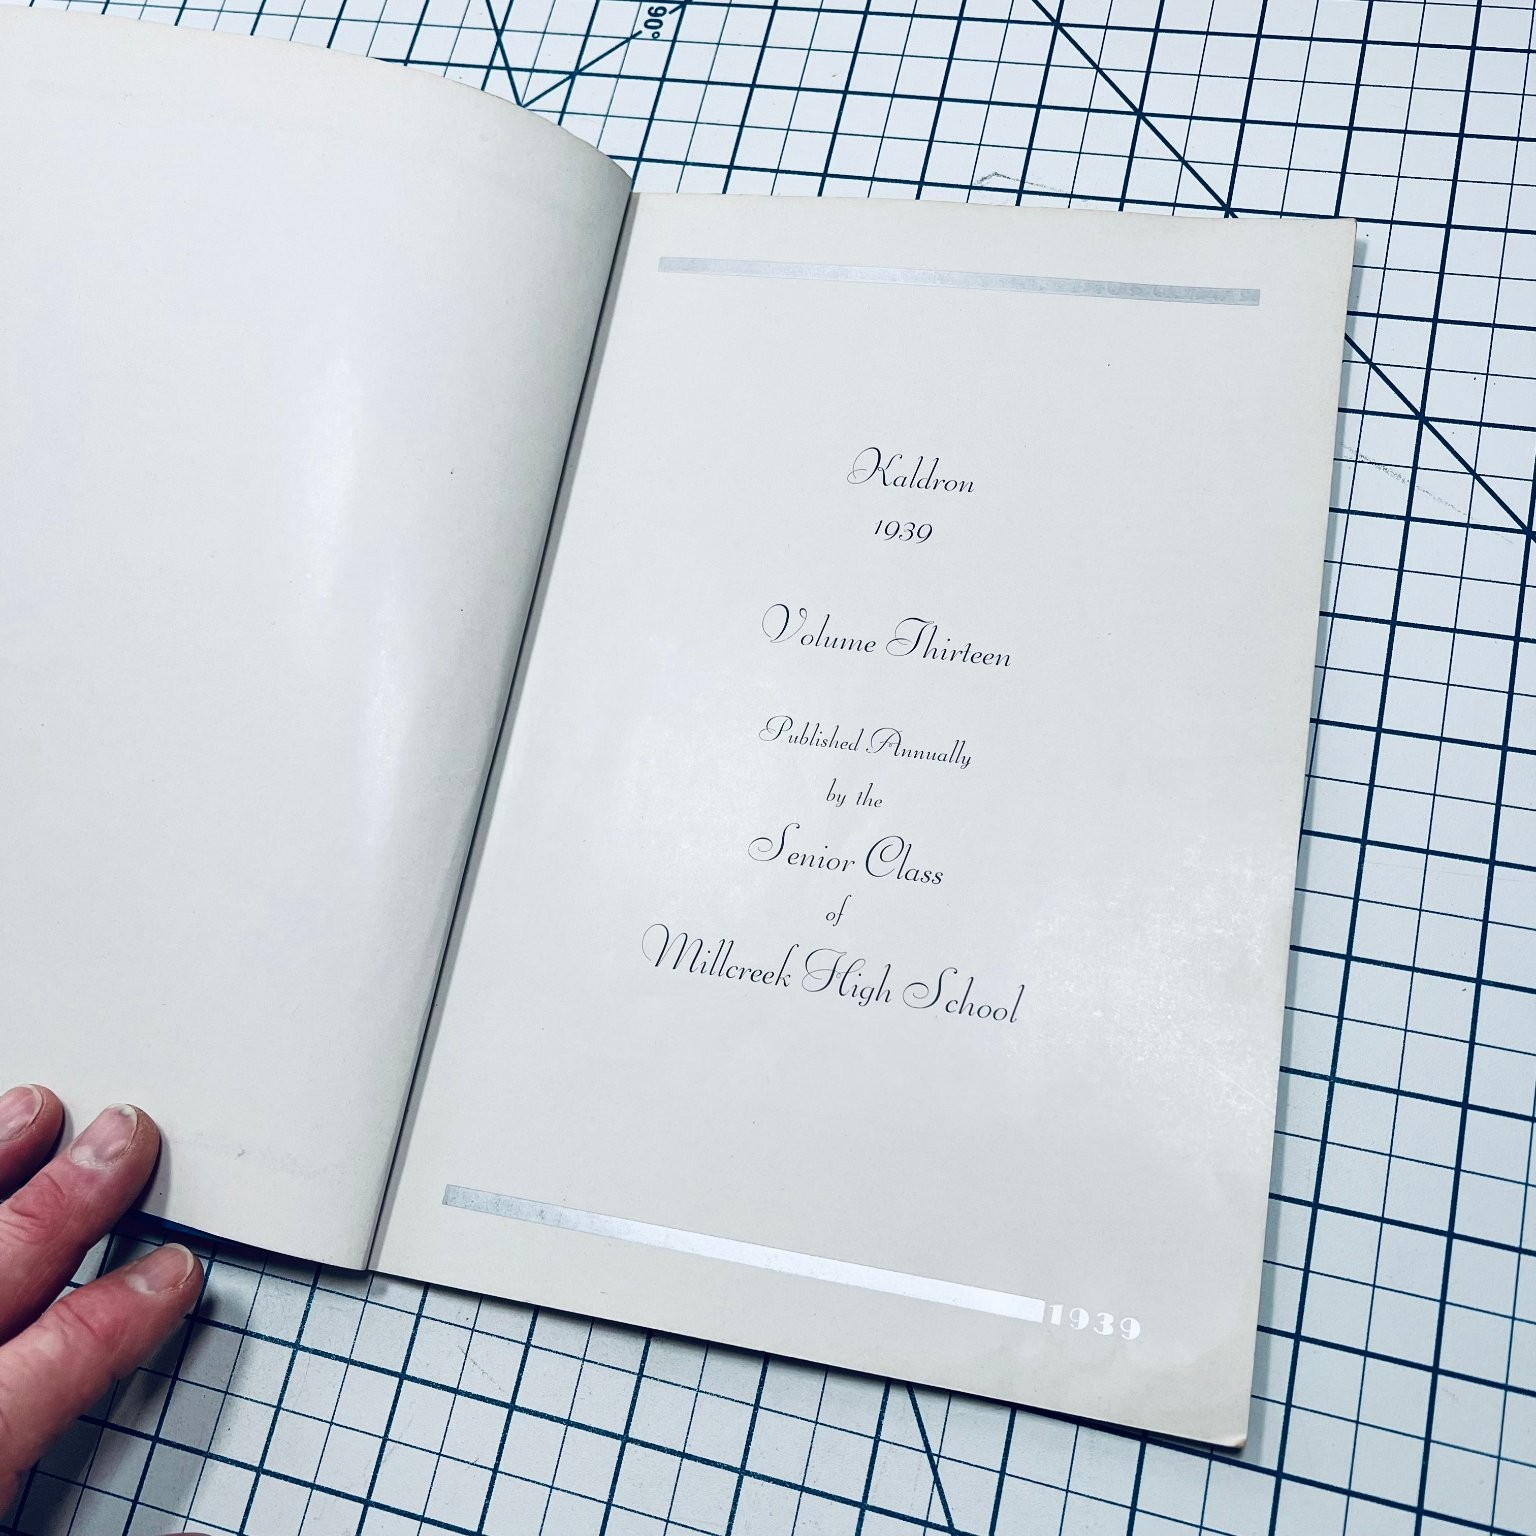 90°
Kaldron
1939
Volume Thirteen
Published Annually
by the
Senior Class
of
Millcreek High School
1939